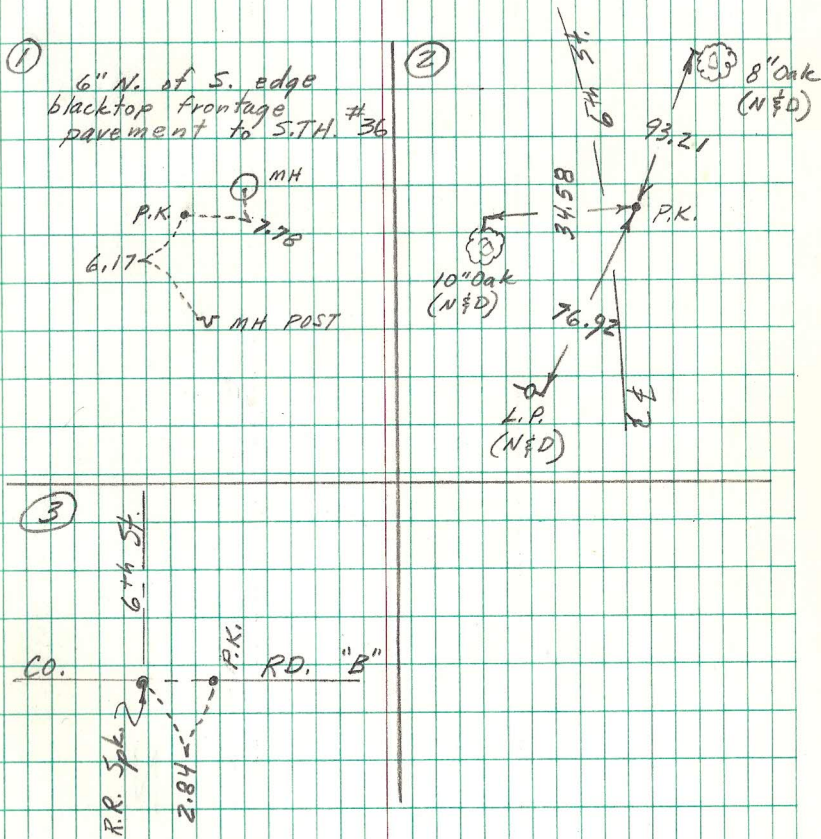 1
6" N. of S. edge
blacktop frontage
pavement to S.T.H. #36
MH
P.K.
7.78
6.17
MH POST
2
6th St.
8" Oak
(N&D)
93.21
34.58
P.K.
10" Oak
(N&D)
76.92
L.P.
(N&D)
3
6th St.
P.K.
CO. RD. "B"
R.R. Spk.
2.84